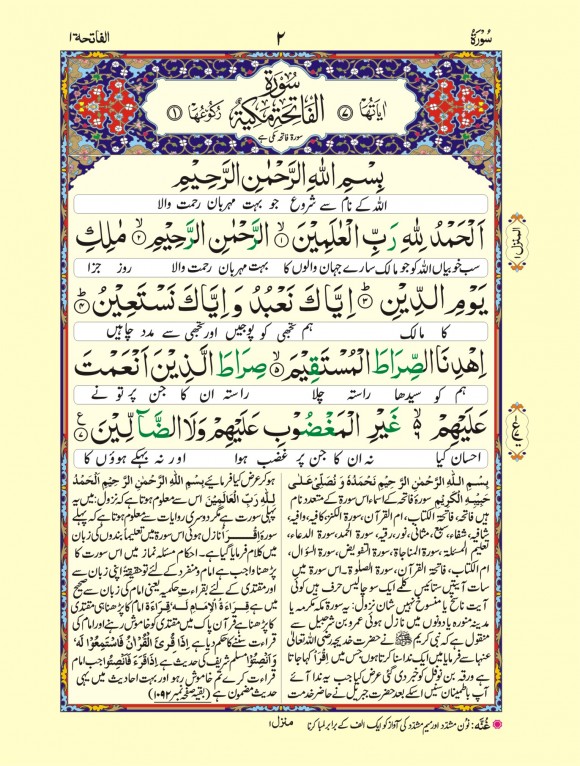 سُوۡرَۃُ ۲ الفاتحۃ ۱
سُوۡرَۃُ
اٰیَاتُهَا ۷ الۡفَاتِحَۃِ مَكِّیَّۃٌ رُكُوۡعُهَا ۱
سورۃ فاتحہ مکی ہے
بِسۡمِ اللّٰهِ الرَّحۡمٰنِ الرَّحِیۡمِ
اللہ کے نام سے شروع جو بہت مہربان رحمت والا
اَلۡحَمۡدُ لِلّٰهِ رَبِّ الۡعٰلَمِیۡنَ ۙ﴿۱﴾ الرَّحۡمٰنِ الرَّحِیۡمِ ۙ﴿۲﴾ مٰلِكِ
المنزل ۱
سب خوبیاں اللہ کو جو مالک سارے جہان والوں کا بہت مہربان رحمت والا روز جزا
یَوۡمِ الدِّیۡنِ ؕ﴿۳﴾ اِیَّاكَ نَعۡبُدُ وَ اِیَّاكَ نَسۡتَعِیۡنُ ؕ﴿۴﴾
کا مالک ہم تجھی کو پوجیں اور تجھی سے مدد چاہیں
اِهۡدِنَا الصِّرَاطَ الۡمُسۡتَقِیۡمَ ۙ﴿۵﴾ صِرَاطَ الَّذِیۡنَ اَنۡعَمۡتَ
ہم کو سیدھا راستہ چلا راستہ ان کا جن پر تو نے
عَلَیۡهِمۡ ۙ۬﴿۶﴾ غَیۡرِ الۡمَغۡضُوۡبِ عَلَیۡهِمۡ وَلَا الضَّآلِّیۡنَ ﴿۷﴾
احسان کیا نہ ان کا جن پر غضب ہوا اور نہ بہکے ہوؤں کا
بِسۡمِ اللّٰهِ الرَّحۡمٰنِ الرَّحِیۡمِ نَحۡمَدُهٗ وَ نُصَلِّیۡ عَلٰی
حَبِیۡبِهِ الۡكَرِیۡمِ سورۂ فاتحہ کے اسماء اس سورۃ کے متعدد نام
ہیں فاتحہ، فاتحۃ الکتاب، ام القرآن، سورۃ الکنز، کافیہ، وافیہ،
شافیہ، شفاء، سبع مثانی، نور، رقیہ، سورۃ الحمد، سورۃ الدعاء،
تعلیم المسئلہ، سورۃ المناجاۃ، سورۃ التفویض، سورۃ السؤال،
ام الکتاب، فاتحۃ القرآن، سورۃ الصلوۃ۔ اس سورۃ میں
سات آیتیں ستائیس کلمے ایک سو چالیس حرف ہیں کوئی
آیت ناسخ یا منسوخ نہیں شان نزول: یہ سورۃ مکہ مکرمہ یا
مدینہ منورہ یا دونوں میں نازل ہوئی عمرو بن شرحبیل سے
منقول ہے کہ نبی کریم ﷺ نے حضرت خدیجہ رضی اللہ تعالیٰ
عنہا سے فرمایا میں ایک ندا سنا کرتا ہوں جس میں اِقۡرَاۡ کہا جاتا
ہے ورقہ بن نوفل کو خبر دی گئی عرض کیا جب یہ ندا آئے
آپ باطمینان سنیں اسکے بعد حضرت جبریل نے حاضر خدمت
ہو کر عرض کیا فرمائیے بِسۡمِ اللّٰهِ الرَّحۡمٰنِ الرَّحِیۡمِ اَلۡحَمۡدُ
لِلّٰهِ رَبِّ الۡعٰلَمِیۡنَ اس سے معلوم ہوتا ہے کہ نزول میں یہ
پہلی سورت ہے مگر دوسری روایات سے معلوم ہوتا ہے کہ پہلے
سورۃ اِقۡرَاۡ نازل ہوئی اس سورۃ میں تعلیماً بندوں کی زبان
میں کلام فرمایا گیا ہے۔ احکام مسئلہ نماز میں اس سورت کا
پڑھنا واجب ہے امام و منفرد کے لئے تو حقیقۃً اپنی زبان سے
اور مقتدی کے لئے بقراءت حکمیہ یعنی امام کی زبان سے صحیح
میں ہے قِرَاءَۃُ الۡاِمَامِ لَهٗ قِرَاءَۃٌ امام کا پڑھنا ہی مقتدی
کا پڑھنا ہے قرآن پاک میں مقتدی کو خاموش رہنے اور امام کی
قراءت سننے کا حکم دیا ہے اِذَا قُرِئَ الۡقُرۡاٰنُ فَاسۡتَمِعُوۡا لَهٗ
وَ اَنۡصِتُوۡا مسلم شریف کی حدیث ہے اِذَا قَرَءَ فَاَنۡصِتُوۡا جب امام
قراءت کرے تم خاموش رہو اور بہت احادیث میں یہی
حدیث مضمون ہے (بقیہ صفحہ نمبر ۱۰۹۲)
غُنَّہ: نون مشدّد اور میم مشدّد کی آواز کو ایک الف کے برابر لمبا کرنا منزل ۱